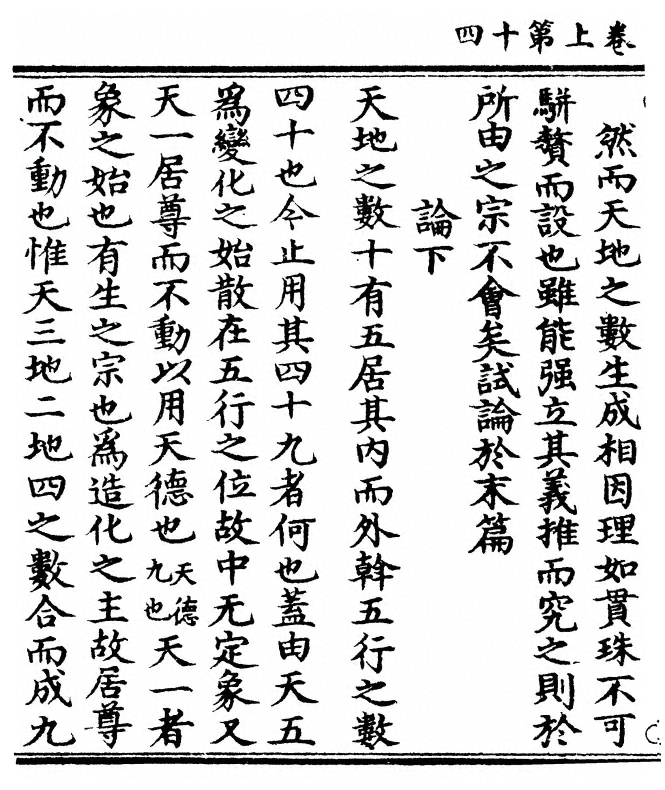 卷上第十四
然而天地之數生成相因理如貫珠不可
騈贅而設也雖能强立其義推而究之則於
所由之宗不會矣試論於末篇
論下
天地之數十有五居其內而外斡五行之數
四十也今止用其四十九者何也蓋由天五
爲變化之始散在五行之位故中无定象又
天一居尊而不動以用天德也天德九也天一者
象之始也有生之宗也爲造化之主故居尊
而不動也惟天三地二地四之數合而成九